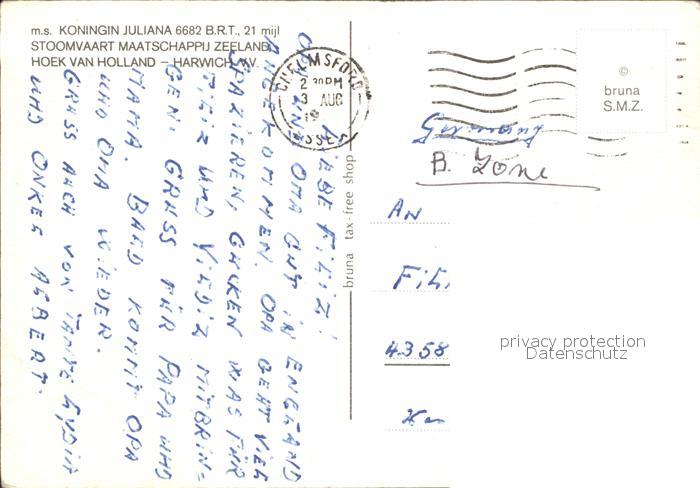 m.s. KONINGIN JULIANA 6682 B.R.T., 21 mijl
STOOMVAART MAATSCHAPPIJ ZEELAND
HOEK VAN HOLLAND – HARWICH V.V.
CHELMSFORD
2 30PM
3 AUG
19
ESSEX
©
bruna
S.M.Z.
Germany
B. Zone
AN
FILI
4358
bruna tax-free shop
privacy protection
Datenschutz
LIEBE FILIZ!
OPA UND OMA GUT IN ENGLAND
ANGEKOMMEN. OPA GEHT VIEL
SPAZIEREN, GUCKEN WAS FÜR
FILIZ UND YILDIZ MITBRIN=
GEN. GRUSS FÜR PAPA UND
MAMA. BALD KOMMT OPA
UND OMA WIEDER.
GRUSS AUCH VON TANTE LYDIA
UND ONKEL ALBERT.